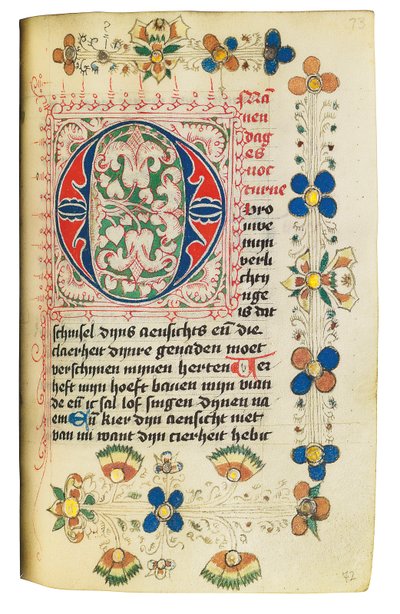 73
Ma
nen
dag
es
noc
turne
O vro
uwe
mijn
verli
chty
nge
is dat
schinsel dijns aensichts eñ die
claerheit dijnre genaden moet
verschijnen mijnen herten Ver
heft mijn hoeft bauen mijn vian
de eñ ic sal lof singen dijnen na
em Eñ kier dijn aensicht niet
van mi want dijn cierheit hebic
72